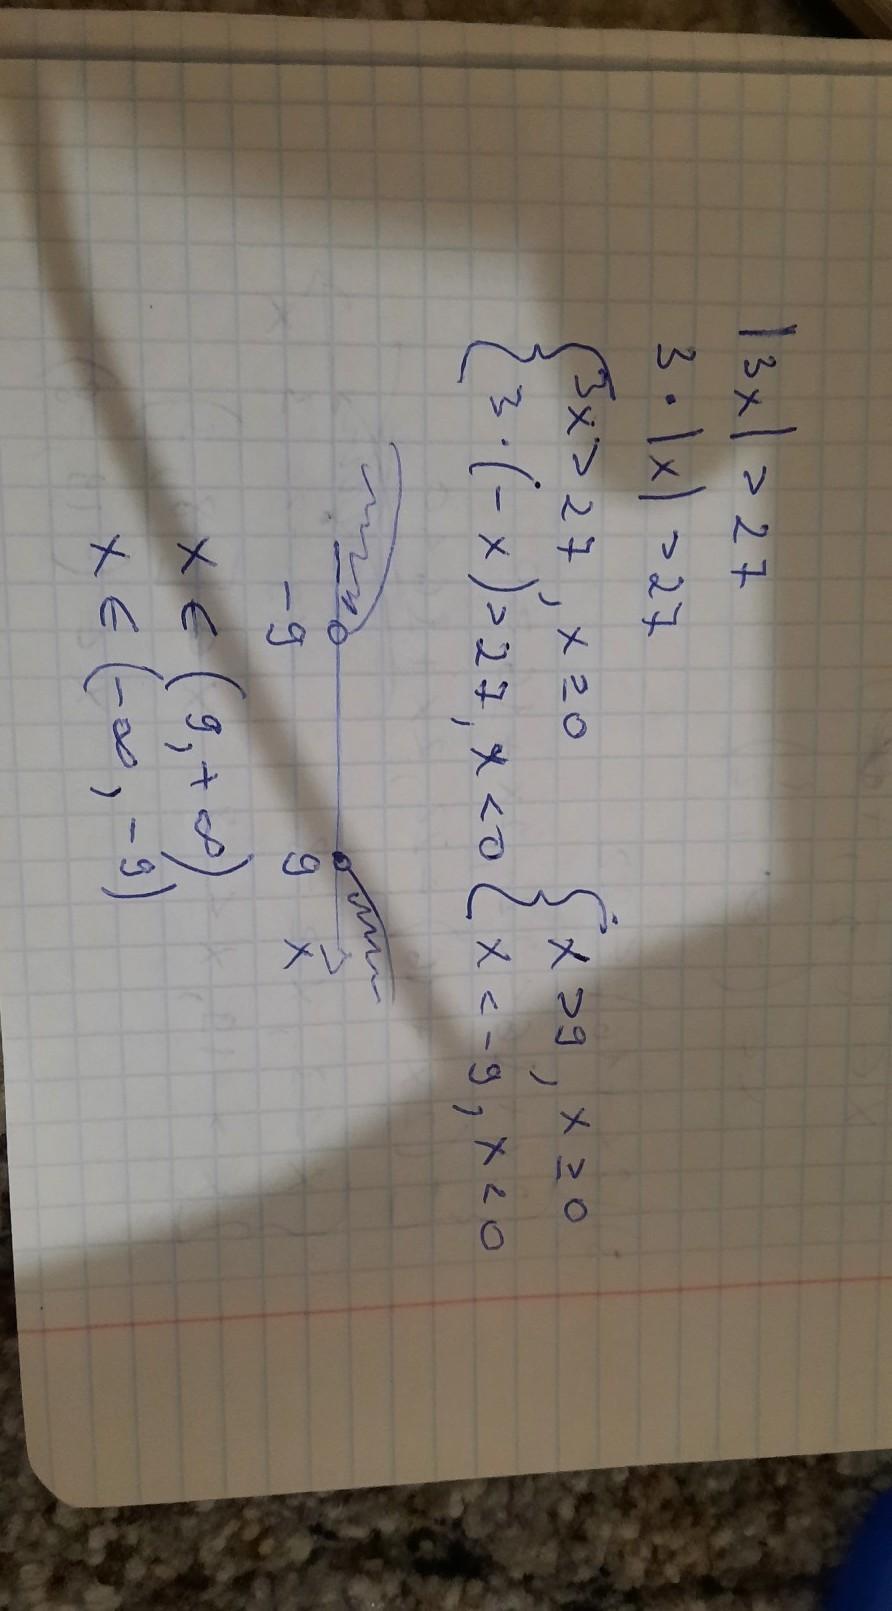 |3x| > 27
3 · |x| > 27
{ 3x > 27, x ≥ 0 { x > 9, x ≥ 0
{ 3 · (-x) > 27, x < 0 { x < -9, x < 0
-9 9 x
x ∈ (9, +∞)
x ∈ (-∞, -9)